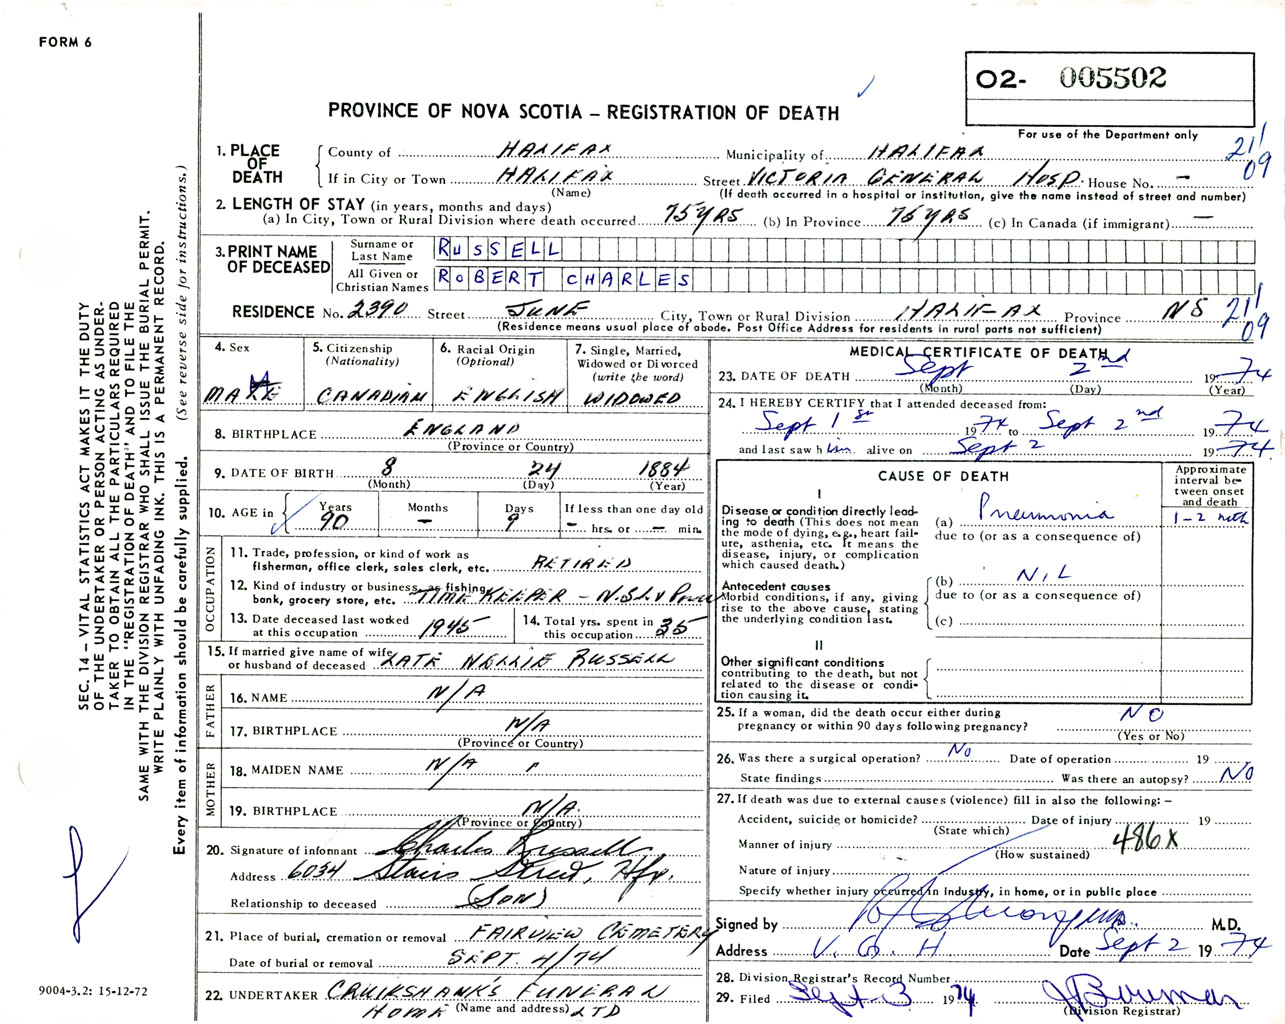 FORM 6
O2- 005502
For use of the Department only
PROVINCE OF NOVA SCOTIA – REGISTRATION OF DEATH
21/
09
1. PLACE OF DEATH
County of HALIFAX Municipality of HALIFAX
If in City or Town HALIFAX Street VICTORIA GENERAL HOSP. House No. –
(Name) (If death occurred in a hospital or institution, give the name instead of street and number)
2. LENGTH OF STAY (in years, months and days)
(a) In City, Town or Rural Division where death occurred 75 YRS (b) In Province 75 YRS (c) In Canada (if immigrant) —
3. PRINT NAME OF DECEASED
Surname or Last Name RUSSELL
All Given or Christian Names ROBERT CHARLES
RESIDENCE No. 2390 Street JUNE City, Town or Rural Division HALIFAX Province NS
(Residence means usual place of abode. Post Office Address for residents in rural parts not sufficient)
21/
09
4. Sex
MALE
M
5. Citizenship
(Nationality)
CANADIAN
6. Racial Origin
(Optional)
ENGLISH
7. Single, Married,
Widowed or Divorced
(write the word)
WIDOWED
8. BIRTHPLACE ENGLAND
(Province or Country)
9. DATE OF BIRTH 8 24 1884
(Month) (Day) (Year)
10. AGE in
Years Months Days If less than one day old
90 – 9 – hrs. or – min.
OCCUPATION
11. Trade, profession, or kind of work as
fisherman, office clerk, sales clerk, etc. RETIRED
12. Kind of industry or business, as fishing,
bank, grocery store, etc. TIME KEEPER – N.S.L & Power
13. Date deceased last worked
at this occupation 1945
14. Total yrs. spent in
this occupation 35
15. If married give name of wife
or husband of deceased LATE NELLIE RUSSELL
FATHER
16. NAME N/A
17. BIRTHPLACE N/A
(Province or Country)
MOTHER
18. MAIDEN NAME N/A
19. BIRTHPLACE N/A.
(Province or Country)
20. Signature of informant Charles Russell
Address 6034 Stairs Street, Hfx.
Relationship to deceased (SON)
21. Place of burial, cremation or removal FAIRVIEW CEMETERY
Date of burial or removal SEPT. 4/74
22. UNDERTAKER CRUIKSHANK'S FUNERAL
HOME (Name and address) LTD
MEDICAL CERTIFICATE OF DEATH
23. DATE OF DEATH Sept 2nd 1974
(Month) (Day) (Year)
24. I HEREBY CERTIFY that I attended deceased from:
Sept 1st 1974 to Sept 2nd 1974
and last saw h im alive on Sept 2 1974.
CAUSE OF DEATH
Approximate
interval be-
tween onset
and death
I
Disease or condition directly lead-
ing to death (This does not mean
the mode of dying, e.g., heart fail-
ure, asthenia, etc. It means the
disease, injury, or complication
which caused death.)
(a) Pneumonia
due to (or as a consequence of)
Antecedent causes
Morbid conditions, if any, giving
rise to the above cause, stating
the underlying condition last.
(b) NIL
due to (or as a consequence of)
(c)
II
Other significant conditions
contributing to the death, but not
related to the disease or condi-
tion causing it.
1-2
25. If a woman, did the death occur either during
pregnancy or within 90 days following pregnancy? NO
(Yes or No)
26. Was there a surgical operation? No Date of operation 19
State findings Was there an autopsy? NO
27. If death was due to external causes (violence) fill in also the following: –
Accident, suicide or homicide? Date of injury 19
(State which)
Manner of injury 486X
(How sustained)
Nature of injury
Specify whether injury occurred in Industry, in home, or in public place
Signed by M.D.
Address V. G. H Date Sept 2 1974
28. Division Registrar's Record Number
29. Filed Sept 3 1974 Bowman
(Division Registrar)
SEC. 14 – VITAL STATISTICS ACT MAKES IT THE DUTY
OF THE UNDERTAKER OR PERSON ACTING AS UNDER-
TAKER TO OBTAIN ALL THE PARTICULARS REQUIRED
IN THE "REGISTRATION OF DEATH" AND TO FILE THE
SAME WITH THE DIVISION REGISTRAR WHO SHALL ISSUE THE BURIAL PERMIT.
WRITE PLAINLY WITH UNFADING INK. THIS IS A PERMANENT RECORD.
Every item of information should be carefully supplied. (See reverse side for instructions.)
9004-3.2: 15-12-72